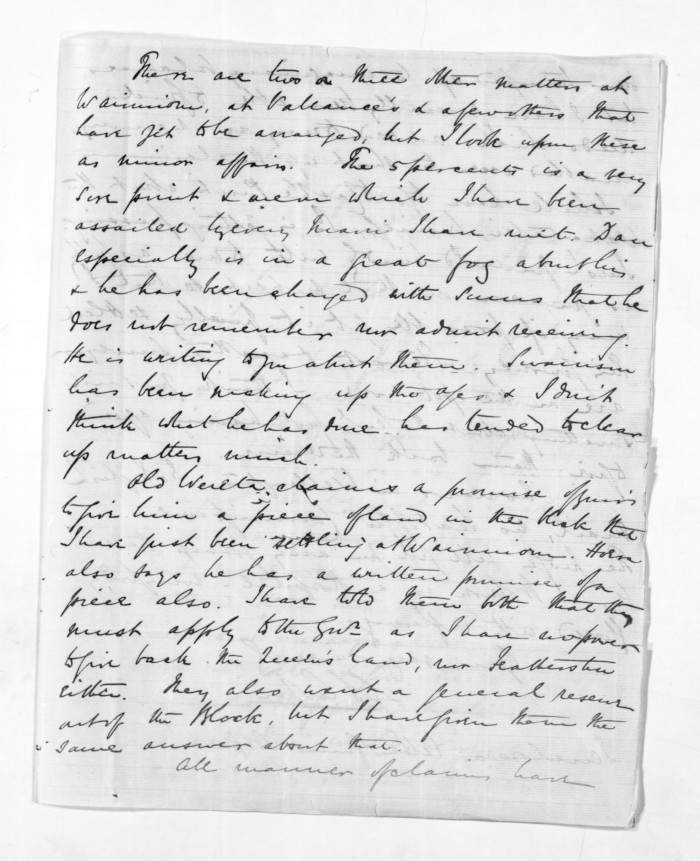 There are two or three other matters at
Wainuiom, at Vallance's & a few others that
have yet to be arranged, but I look upon these
as minor affairs. The 5 percents is a very
sore point & one on which I have been
assailed by every Maori I have met. Dan
especially is in a great fog about his
& he has been charged with sums that he
does not remember nor admit receiving.
He is writing to you about them. Swainson
has been making up the a/cs & I don't
think what he has done has tended to clear
up matters much.
Old Wereta claims a promise of yours
to give him a piece of land in the block that
I have just been settling at Wainuiom.
also says he has a written promise of a
piece also. I have told them both that they
must apply to the Govt. as I have no power
to give back the Queen's land, nor Featherston
either. They also want a general reserve
out of the Block, but I have given them the
same answer about that.
All manner of claims have